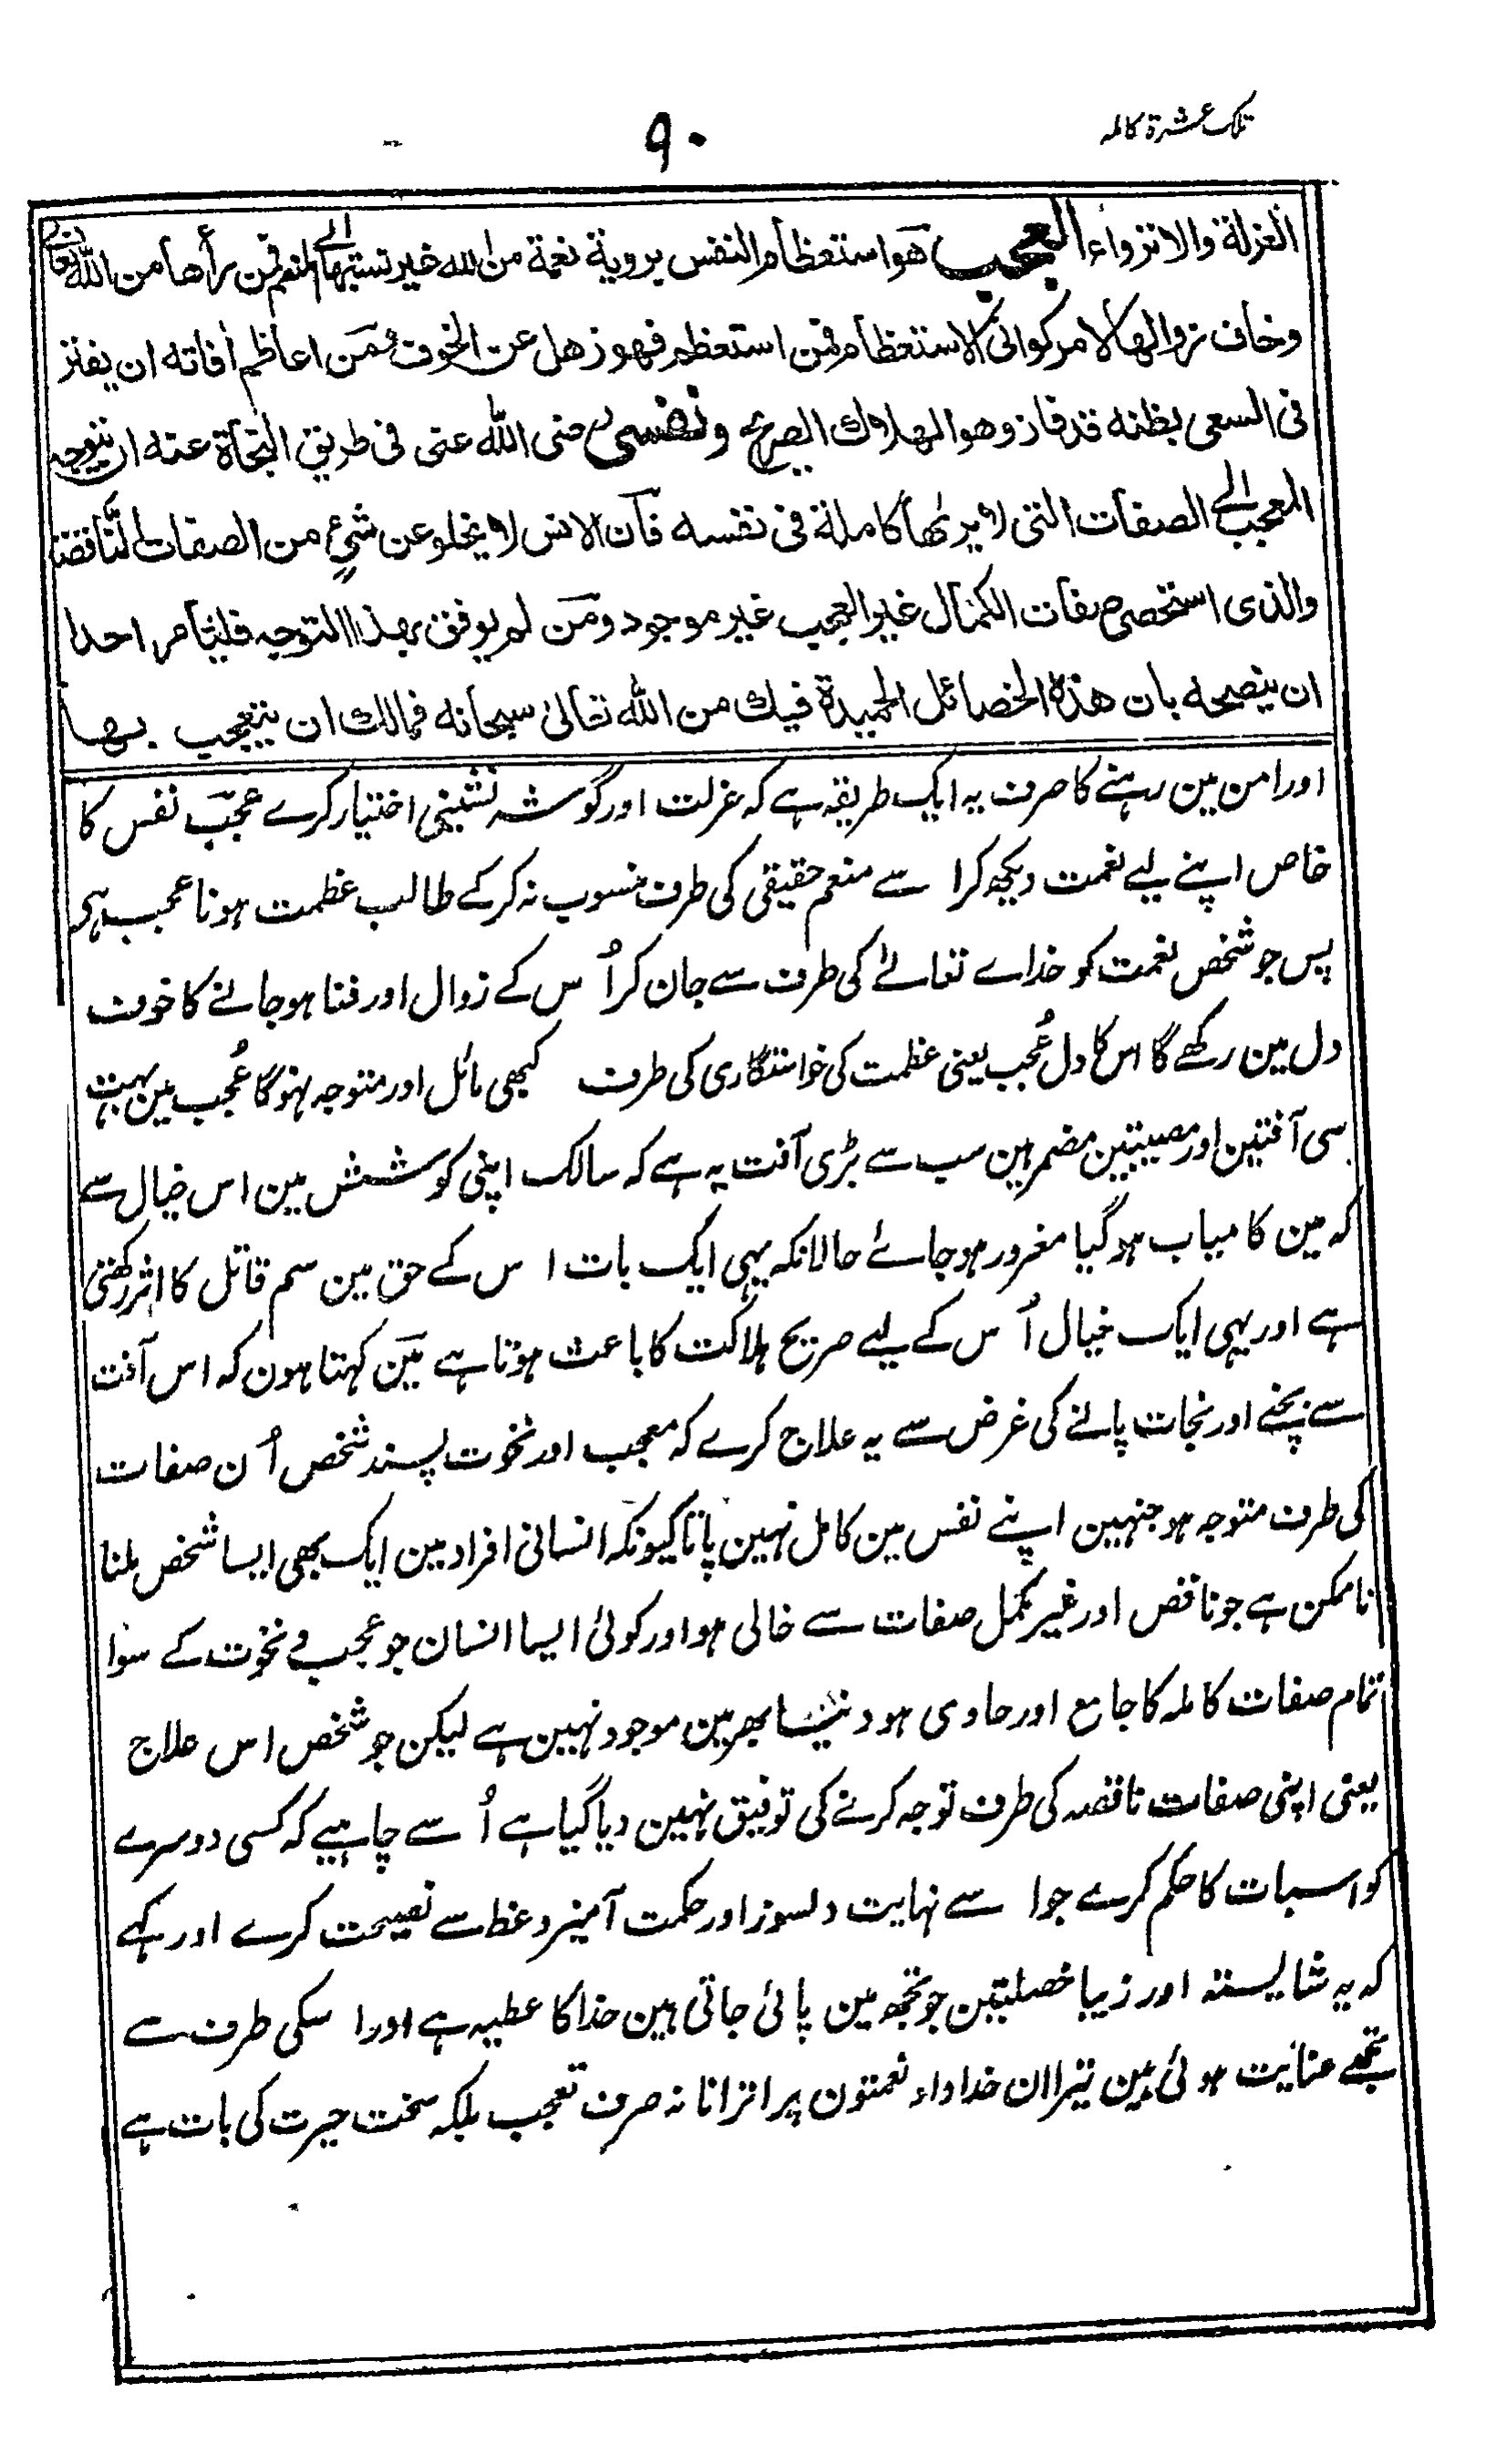 تلک عشرة کاملہ
۹۰
العزلة والانزواء العجب هو استعظام النفس برویة نعمة من الله غیر نسبتها الی المنعم فمن رأها من الله تعالی
وخاف زوالها لا مرکوا الی الاستعظام فمن استعظم فهو زهل عن الخوف ومن اعاظم افاته ان یفتر
فی السعی بظنه قد فاز وهو الهلاك الصریح ونفسی رضی الله عنی فی طریق النجاة عنه ان یتوجه
المعجب الی الصفات التی لا یرىها کاملة فی نفسه فان الانس لا یخلو عن شئ من الصفات الناقضة
والذی استخصی صفات الکمال غیر العجب غیر موجود ومن لم یوفق بهذا التوجه فلیأمر احدا
ان ینصحه بان هذه الخصائل الحمیدة فیك من الله تعالیٰ سبحانه فمالك ان یتعجب بها
اور امن مین رہنے کا صرف یہ ایک طریقہ ہے کہ عزلت اور گوشہ نشینی اختیار کرے عجب نفس کا
خاص اپنے لیے نعمت دیکھ کر ا سے منعم حقیقی کی طرف منسوب نہ کرکے طالب عظمت ہونا عجب ہی
پس جو شخص نعمت کو خداے تعالےٰ کی طرف سے جان کر اُ س کے زوال اور فنا ہوجانے کا خوف
دل مین رکھے گا اس کا دل عُجب یعنی عظمت کی خواستگاری کی طرف کبھی مائل اور متوجہ نہوگا عُجب مین بہت
سی آفتین اور مصیبتین مضمر ہین سب سے بڑی آفت یہ ہے کہ سالک اپنی کوشش مین اس خیال سے
کہ مین کامیاب ہوگیا مغرور ہوجائے حالانکہ یہی ایک بات ا س کے حق مین سم قاتل کا اثر رکھتی
ہے اور یہی ایک خیال اُ س کے لیے صریح ہلاکت کا باعث ہوتا ہے مین کہتا ہون کہ اس آفت
سے بچنے اور نجات پانے کی غرض سے یہ علاج کرے کہ معجب اور نخوت پسند شخص اُ ن صفات
کی طرف متوجہ ہو جنہین اپنے نفس مین کامل نہین پاتا کیونکہ انسانی افراد مین ایک بھی ایسا شخص ملنا
ناممکن ہے جو ناقص اور غیر مکمل صفات سے خالی ہو اور کوئی ایسا انسان جو عجب و نخوت کے سوا
تمام صفات کاملہ کا جامع اور حاوی ہو دنیا بھر مین موجود نہین ہے لیکن جو شخص اس علاج
یعنی اپنی صفات ناقصہ کی طرف توجہ کرنے کی توفیق نہین دیا گیا ہے اُ سے چاہیے کہ کسی دوسرے
کو اسبات کا حکم کرے جو ا سے نہایت دلسوز اور حکمت آمیز وعظ سے نصیحت کرے اور کہے
کہ یہ شایستہ اور زیبا خصلتین جو تجھ مین پائی جاتی ہین خدا کا عطیہ ہے اور ا سکی طرف سے
تجھے عنایت ہوئی ہین تیرا ان خداداد نعمتون پر اترانا نہ صرف تعجب بلکہ سخت حیرت کی بات ہے